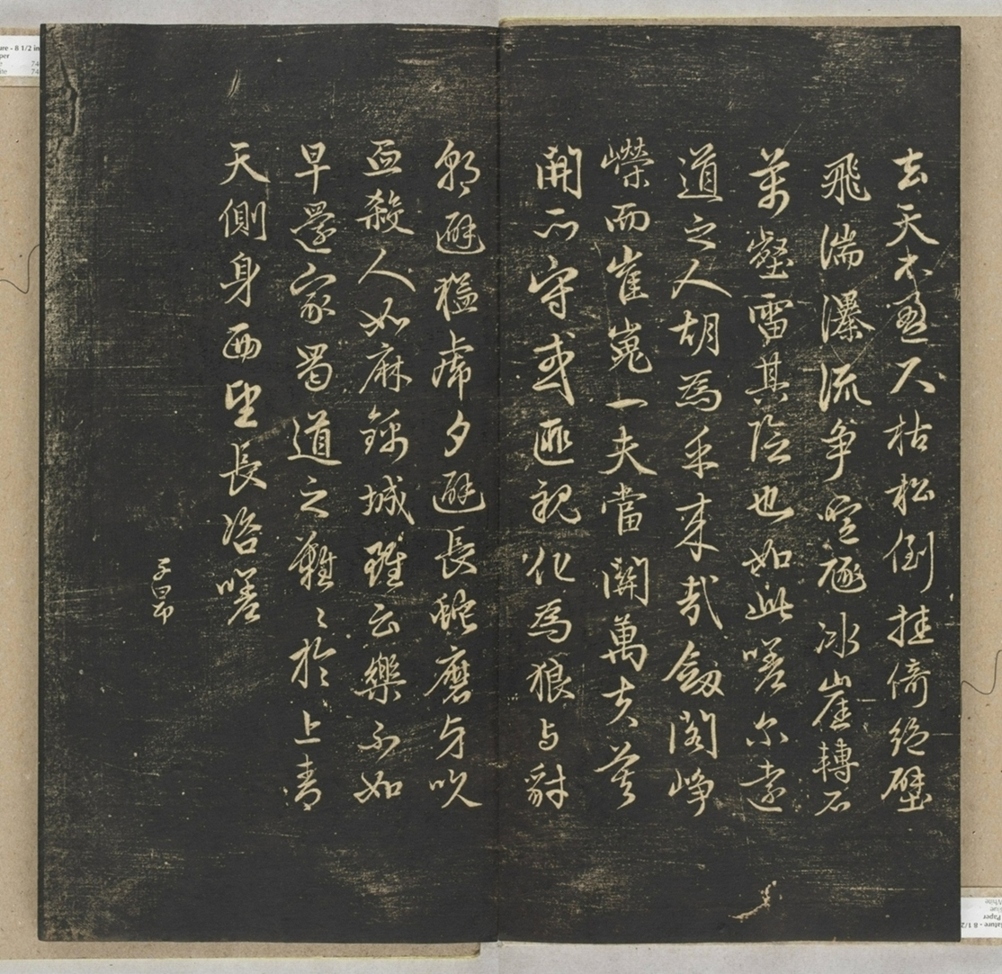 去天不盈尺枯松倒挂倚絶壁
飛湍瀑流争喧豗冰崖轉石
萬壑雷其險也如此嗟尔遠
道之人胡為乎来哉劔閣崢
嶸而崔嵬一夫當關萬夫莫
開所守或匪親化為狼与豺
朝避猛虎夕避長虵磨牙吮
血殺人如麻錦城雖云樂不如
早還家蜀道之難〻於上青
天側身西望長咨嗟
子昂